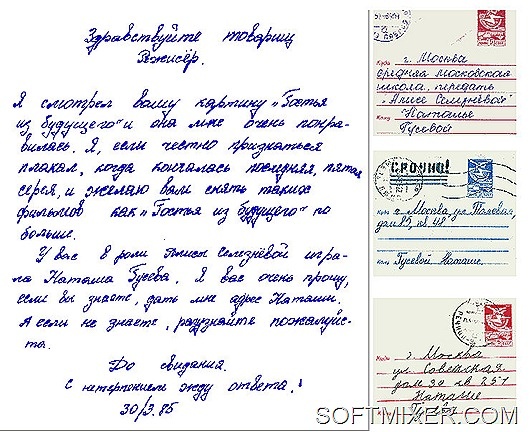 Здравствуйте товарищ
Режисёр.
Я смотрел вашу картину „Гостья
из будущего" и она мне очень понра-
вилась. Я, если честно признаться
плакал, когда кончалась последняя, пятая
серея, и желаю вам снять таких
фильмов как „Гостья из будущего" по
больше.
У вас в роли Алисы Селезнёвой игра-
ла Наташа Гусева. Я вас очень прошу,
если вы знаете, дать мне адрес Наташи.
А если не знаете, разузнайте пожалуйс-
та.
До свидания.
С нетерпением жду ответа.
30/3.85
Куда г. Москва
средняя московская
школа, передать
Алисе Селезнёвой
Кому Наталье
Гусевой
СРОЧНО!
Куда г. Москва ул. Полевая
дом 85, кв. 48
Кому Гусевой Наташе
Куда г. Москва
ул. Советская
дом 30 кв 251
Кому Наташе
Гусевой
SOFTMIXER.COM